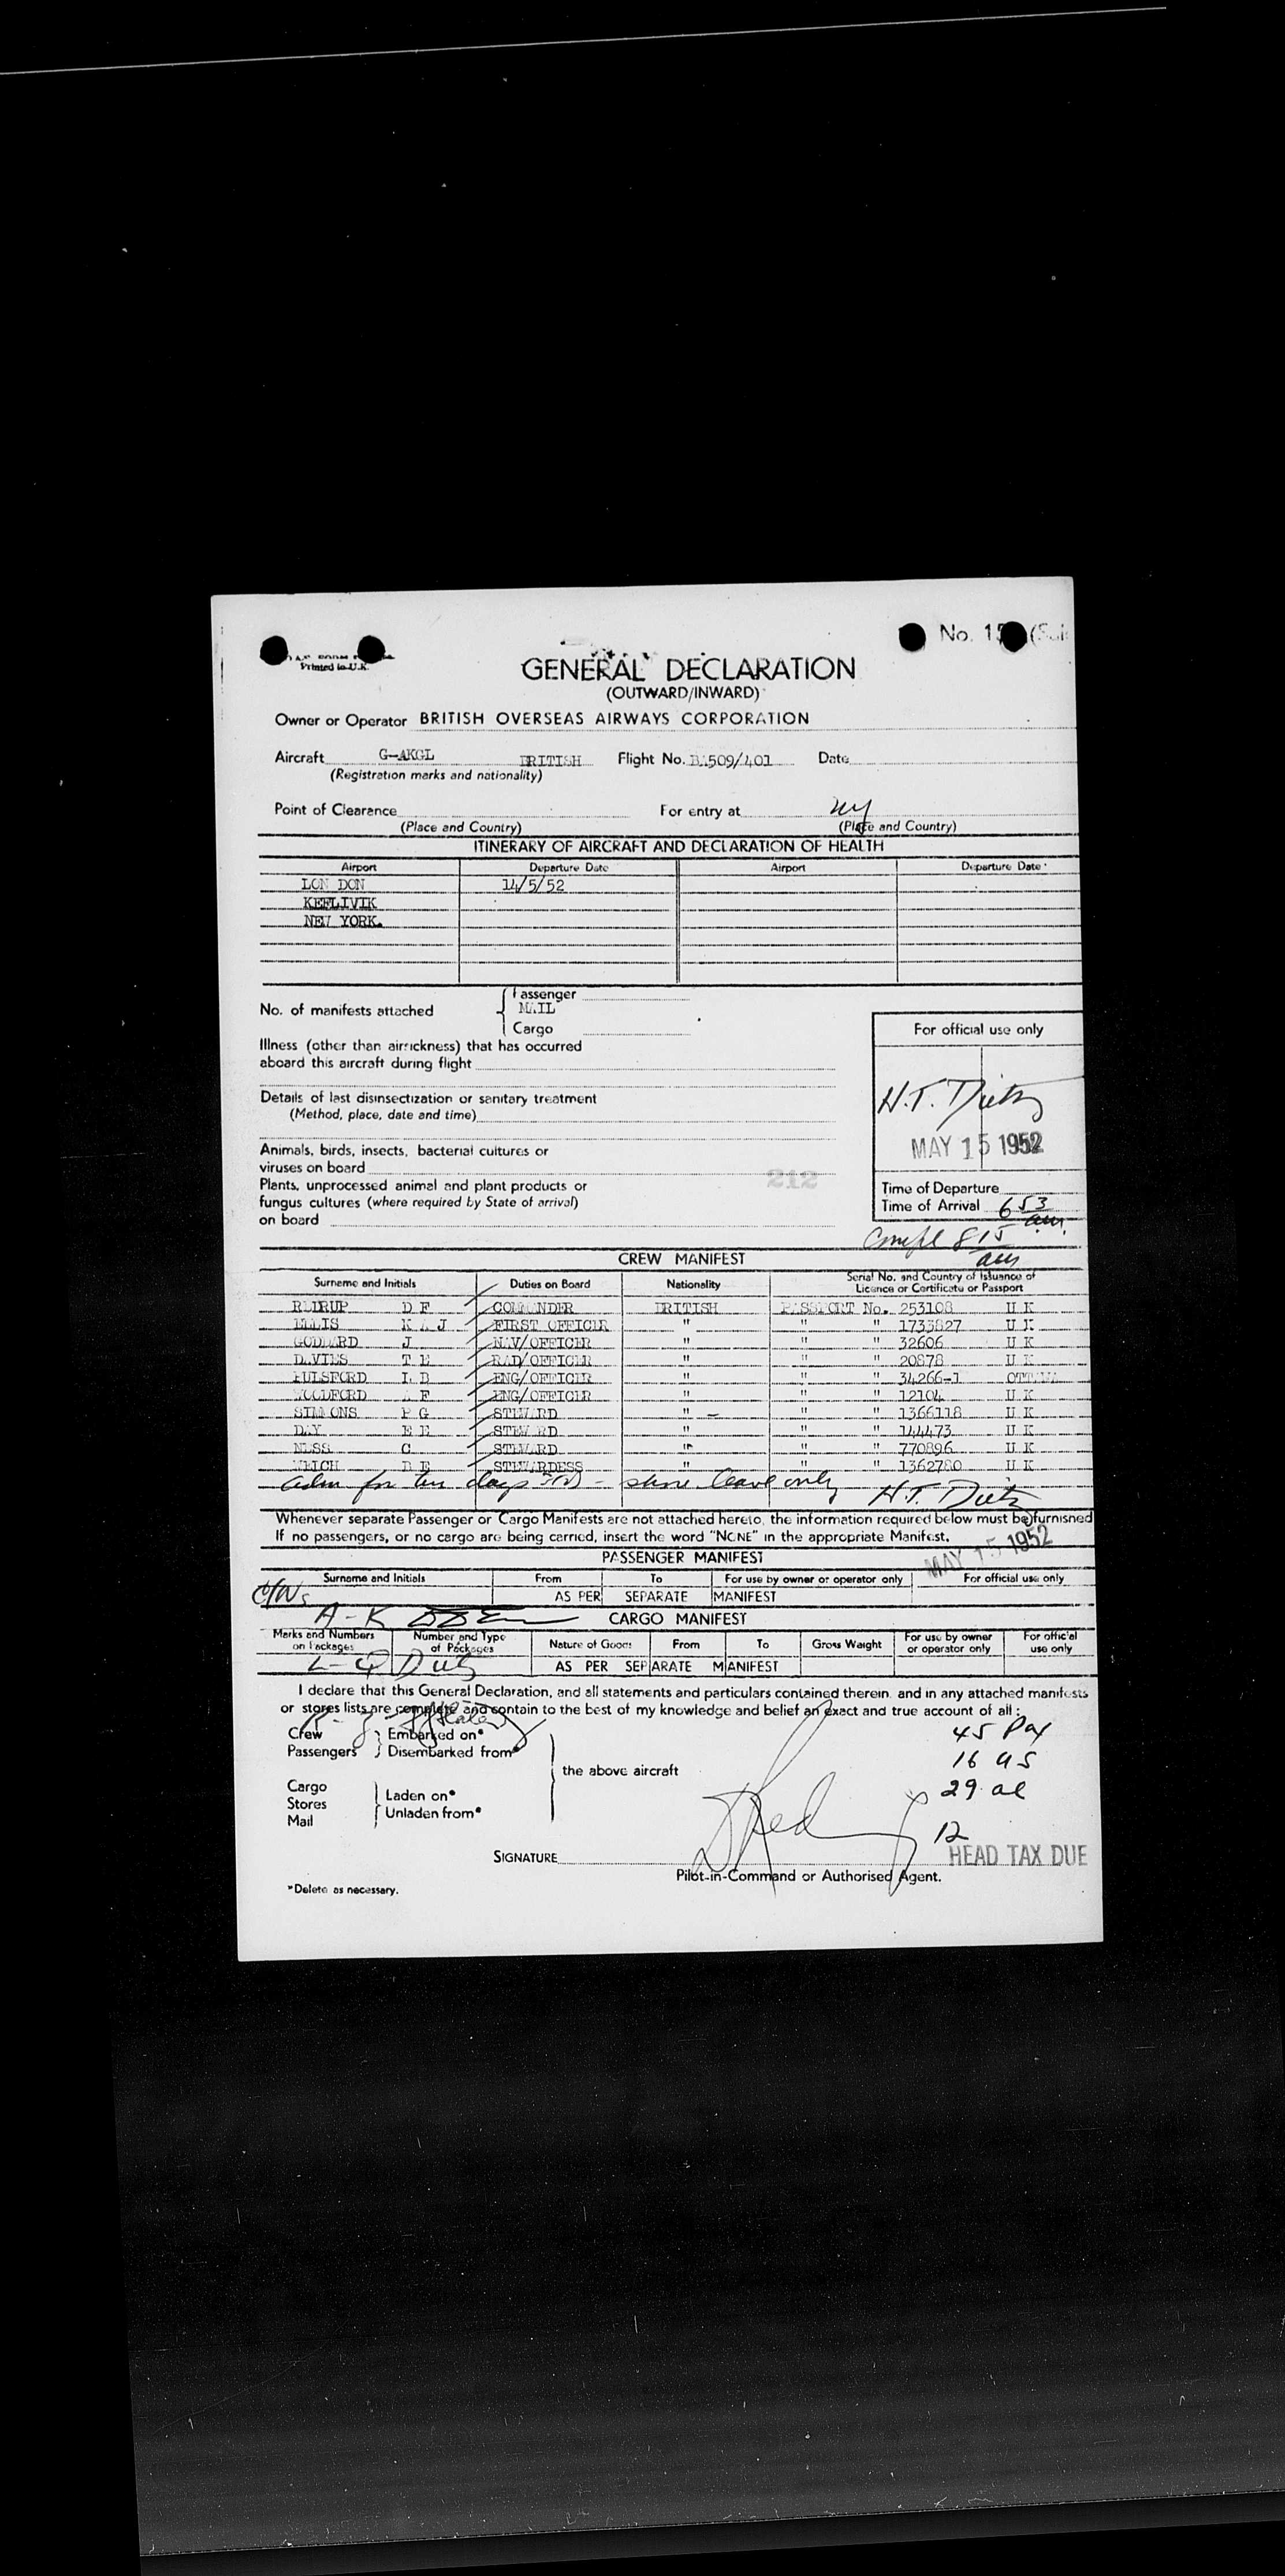 No. 15
Printed in U.K.
GENERAL DECLARATION
(OUTWARD/INWARD)
Owner or Operator BRITISH OVERSEAS AIRWAYS CORPORATION
Aircraft G-AKGL BRITISH Flight No. BA509/401 Date
(Registration marks and nationality)
Point of Clearance For entry at NY
(Place and Country) (Place and Country)
ITINERARY OF AIRCRAFT AND DECLARATION OF HEALTH
Airport Departure Date Airport Departure Date
LON DON 14/5/52
KEFLIVIK
NEW YORK.
No. of manifests attached
Passenger
MAIL
Cargo
For official use only
Illness (other than airsickness) that has occurred
aboard this aircraft during flight
Details of last disinsectization or sanitary treatment
(Method, place, date and time)
H.T. Dietz
MAY 15 1952
Animals, birds, insects, bacterial cultures or
viruses on board
212
Plants, unprocessed animal and plant products or
fungus cultures (where required by State of arrival)
on board
Time of Departure
Time of Arrival 6 53 am.
Compl 8 15 am
CREW MANIFEST
Surname and Initials Duties on Board Nationality Serial No. and Country of Issuance of Licence or Certificate or Passport
D F COMMANDER BRITISH PASSPORT No. 253108 U K
ELLIS K A J FIRST OFFICER " " " 1733827 U K
GODDARD J NAV/OFFICER " " " 32606 U K
DAVIES T E RAD/OFFICER " " " 20878 U K
PULSFORD L B ENG/OFFICER " " " 34266-1 OTTAWA
WOODFORD A F ENG/OFFICER " " " 12104 U K
SIMMONS P G STEWARD " - " " 1366118 U K
DAY E E STEWARD " " " 144473 U K
NESS C STEWARD " " " 770896 U K
WELCH D E STEWARDESS " " " 1362780 U K
adm for ten days - shore leave only H.T. Dietz
Whenever separate Passenger or Cargo Manifests are not attached hereto, the information required below must be furnished
If no passengers, or no cargo are being carried, insert the word "NONE" in the appropriate Manifest.
MAY 15 1952
PASSENGER MANIFEST
Surname and Initials From To For use by owner or operator only For official use only
AS PER SEPARATE MANIFEST
A-K
CARGO MANIFEST
Marks and Numbers on Packages Number and Type of Packages Nature of Goods From To Gross Weight For use by owner or operator only For official use only
L-Q Dietz AS PER SEPARATE MANIFEST
I declare that this General Declaration, and all statements and particulars contained therein, and in any attached manifests
or stores lists are complete and contain to the best of my knowledge and belief an exact and true account of all :
Crew Embarked on*
Passengers Disembarked from*
the above aircraft
Cargo
Stores
Mail
Laden on*
Unladen from*
45 Pax
16 US
29 al
12
HEAD TAX DUE
SIGNATURE
Pilot-in-Command or Authorised Agent.
*Delete as necessary.